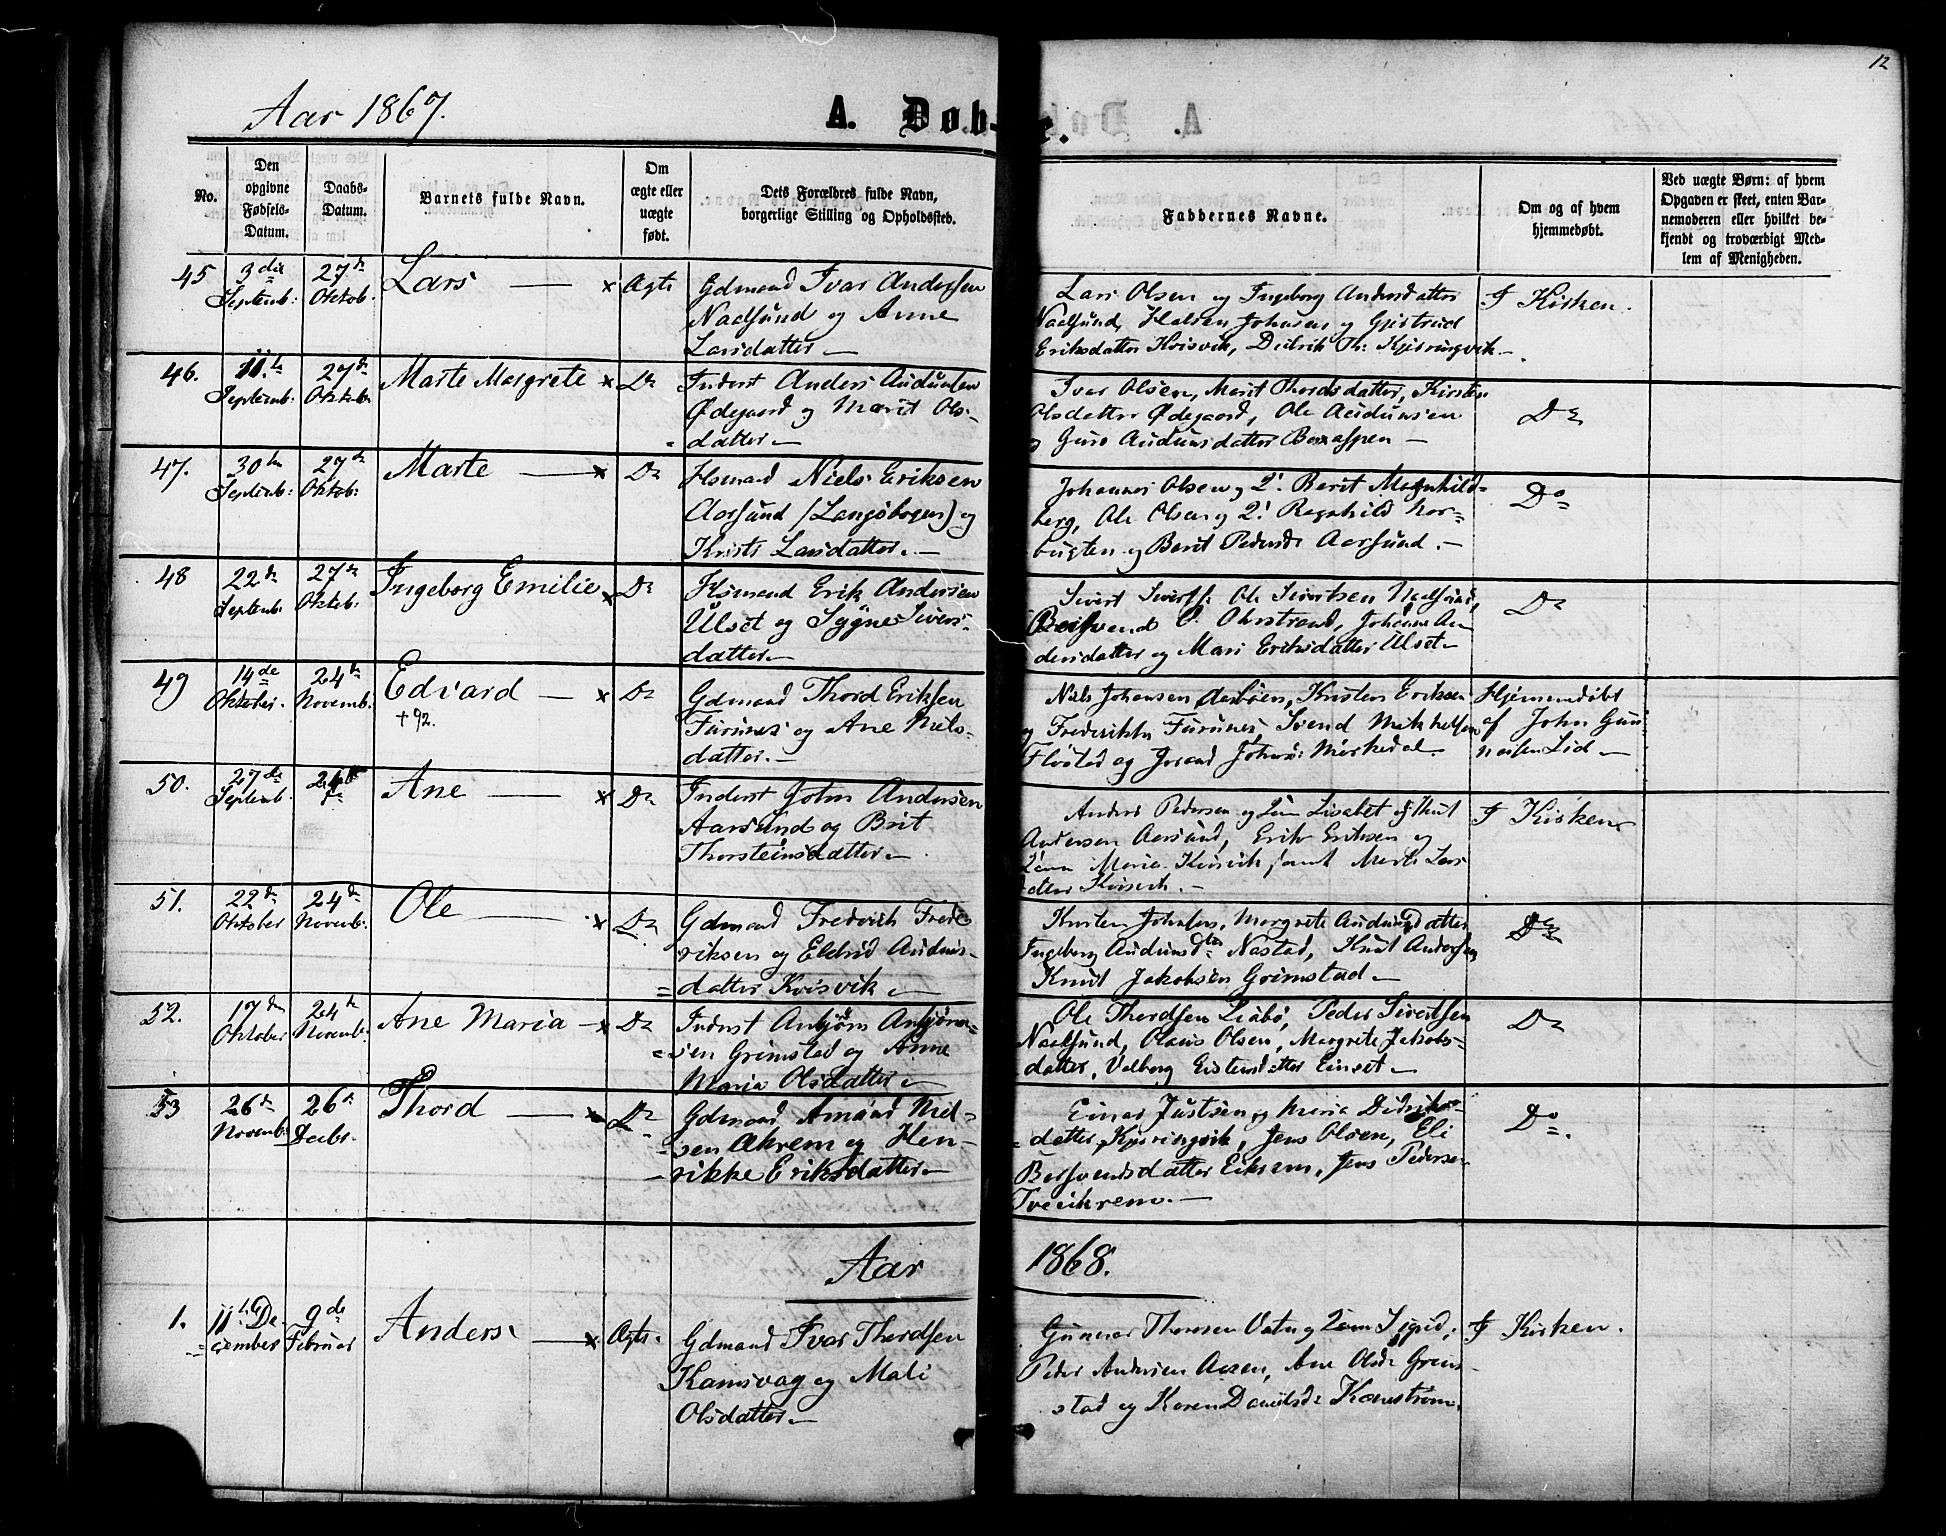 12
Aar 1867.
A. Døbte.
No.
Den opgivne Fødsels-Datum.
Daabs-Datum.
Barnets fulde Navn.
Om ægte eller uægte født.
Dets Forældres fulde Navn, borgerlige Stilling og Opholdssted.
Faddernes Navne.
Om og af hvem hjemmedøbt.
Ved uægte Børn: af hvem Opgaven er skeet, enten Barnemoderen eller hvilket bekjendt og troværdigt Medlem af Menigheden.
45 3die Septemb: 27de Oktob. Lars — × Ægte
Gdmand Ivar Andersen
Nadsund og Anne
Larsdatter —
Lars Olsen og Ingeborg Andersdatter
Nadsund, Halsten Johnsen og Gjertrud
Eriksdatter Kvisvik, Didrik Th: Kjøringsvik —
I Kirken.
46. 11te Septemb: 27de Oktob: Marte Margrete × Do
Inderst Anders Audunsen
Ødegaard og Marit Ols-
datter —
Ivar Olsen, Marit Thordsdatter, Kirsten
Olsdatter Ødegaard, Ole Audunsen
og Guro Audunsdatter Boxaspen —
Do
47. 30te Septemb: 27de Oktob: Marte — × Do
Hsmand Niels Eriksen
Aarsund (Langøbogen) og
Kristi Larsdatter. —
Johannes Olsen og Berit Magnhild-
berg, Ole Olsen og Ragnhild Nor-
bugten og Berit Pedersd: Aarsund. —
Do
48 22de Septemb: 27de Oktob: Ingeborg Emilie × Do
Hsmand Erik Andersen
Ulset og Sygne Sivers-
datter —
Sivert Sivertss: Ole Sivertsen Nadsund,
Berhsvend O. Ohrstrand, Johanne An
dersdatter og Mari Eriksdatter Ulset —
Do
49 14de Oktober. 24de Novemb. Edvard — × Do
+ 92.
Gdmand Thord Eriksen
Furunes og Ane Niels-
datter. —
Niels Johansen Aasbøen, Kristen Eriksen
og Frederikke Furunes, Svend Mikkelsen
Flostad og Jorand Johns: Mørkedal —
Hjemmedøbt
af John Gun
nersen Lid —
50. 27de Septemb. 24de Ane — × Do
Inderst John Andersen
Aarsund og Brit
Thorsteinsdatter —
Anders Pedersen og Lisabet og Knut
Andersen Aarsund, Erik Eriksen og
Maria Kvisvik samt Marte Lars
datter Kvisvik. —
I Kirken
51. 22de Oktober 24de Novemb: Ole — × Do
Gdmand Fredrik Frede-
riksen og Eldrid Auduns-
datter Kvisvik —
Kristen Johnsen, Margrete Audunsdatter
Ingeborg Audunsdtr Nastad, Knut Andersen
Knut Jakobsen Grimstad —
Do
52. 17de Oktober 24de Novemb: Ane Maria — × Do
Inderst Anbjørn Anbjørn-
sen Grimstad og Anne
Maria Olsdatter —
Ole Thordsen Liabø, Peder Sivertsen
Nadsund, Olaus Olsen, Margrete Jakobs-
datter, Valborg Eistensdatter Einset —
Do
53 26de Novemb: 26de Decbr. Thord — × Do
Gdmand Amund Niel-
sen Akrem og Hen-
rikke Eriksdatter —
Einar Justsen og Maria Didriks-
datter Kjøringsvik, Jens Olsen, Eli
Bersvendsdatter Eikrem, Jens Pedersen
Tveikrem. —
Do.
Aar 1868.
1. 11te De-cember 9de Februar Anders — × Ægte.
Gdmand Ivar Thordsen
Kamsvag og Mali
Olsdatter —
Gunnar Thoresen Vatn og Sigrid,
Peder Andersen Aasen, Ane Olsdr Grim-
stad og Karen Danielsdr Kanestrøm.
I Kirken.